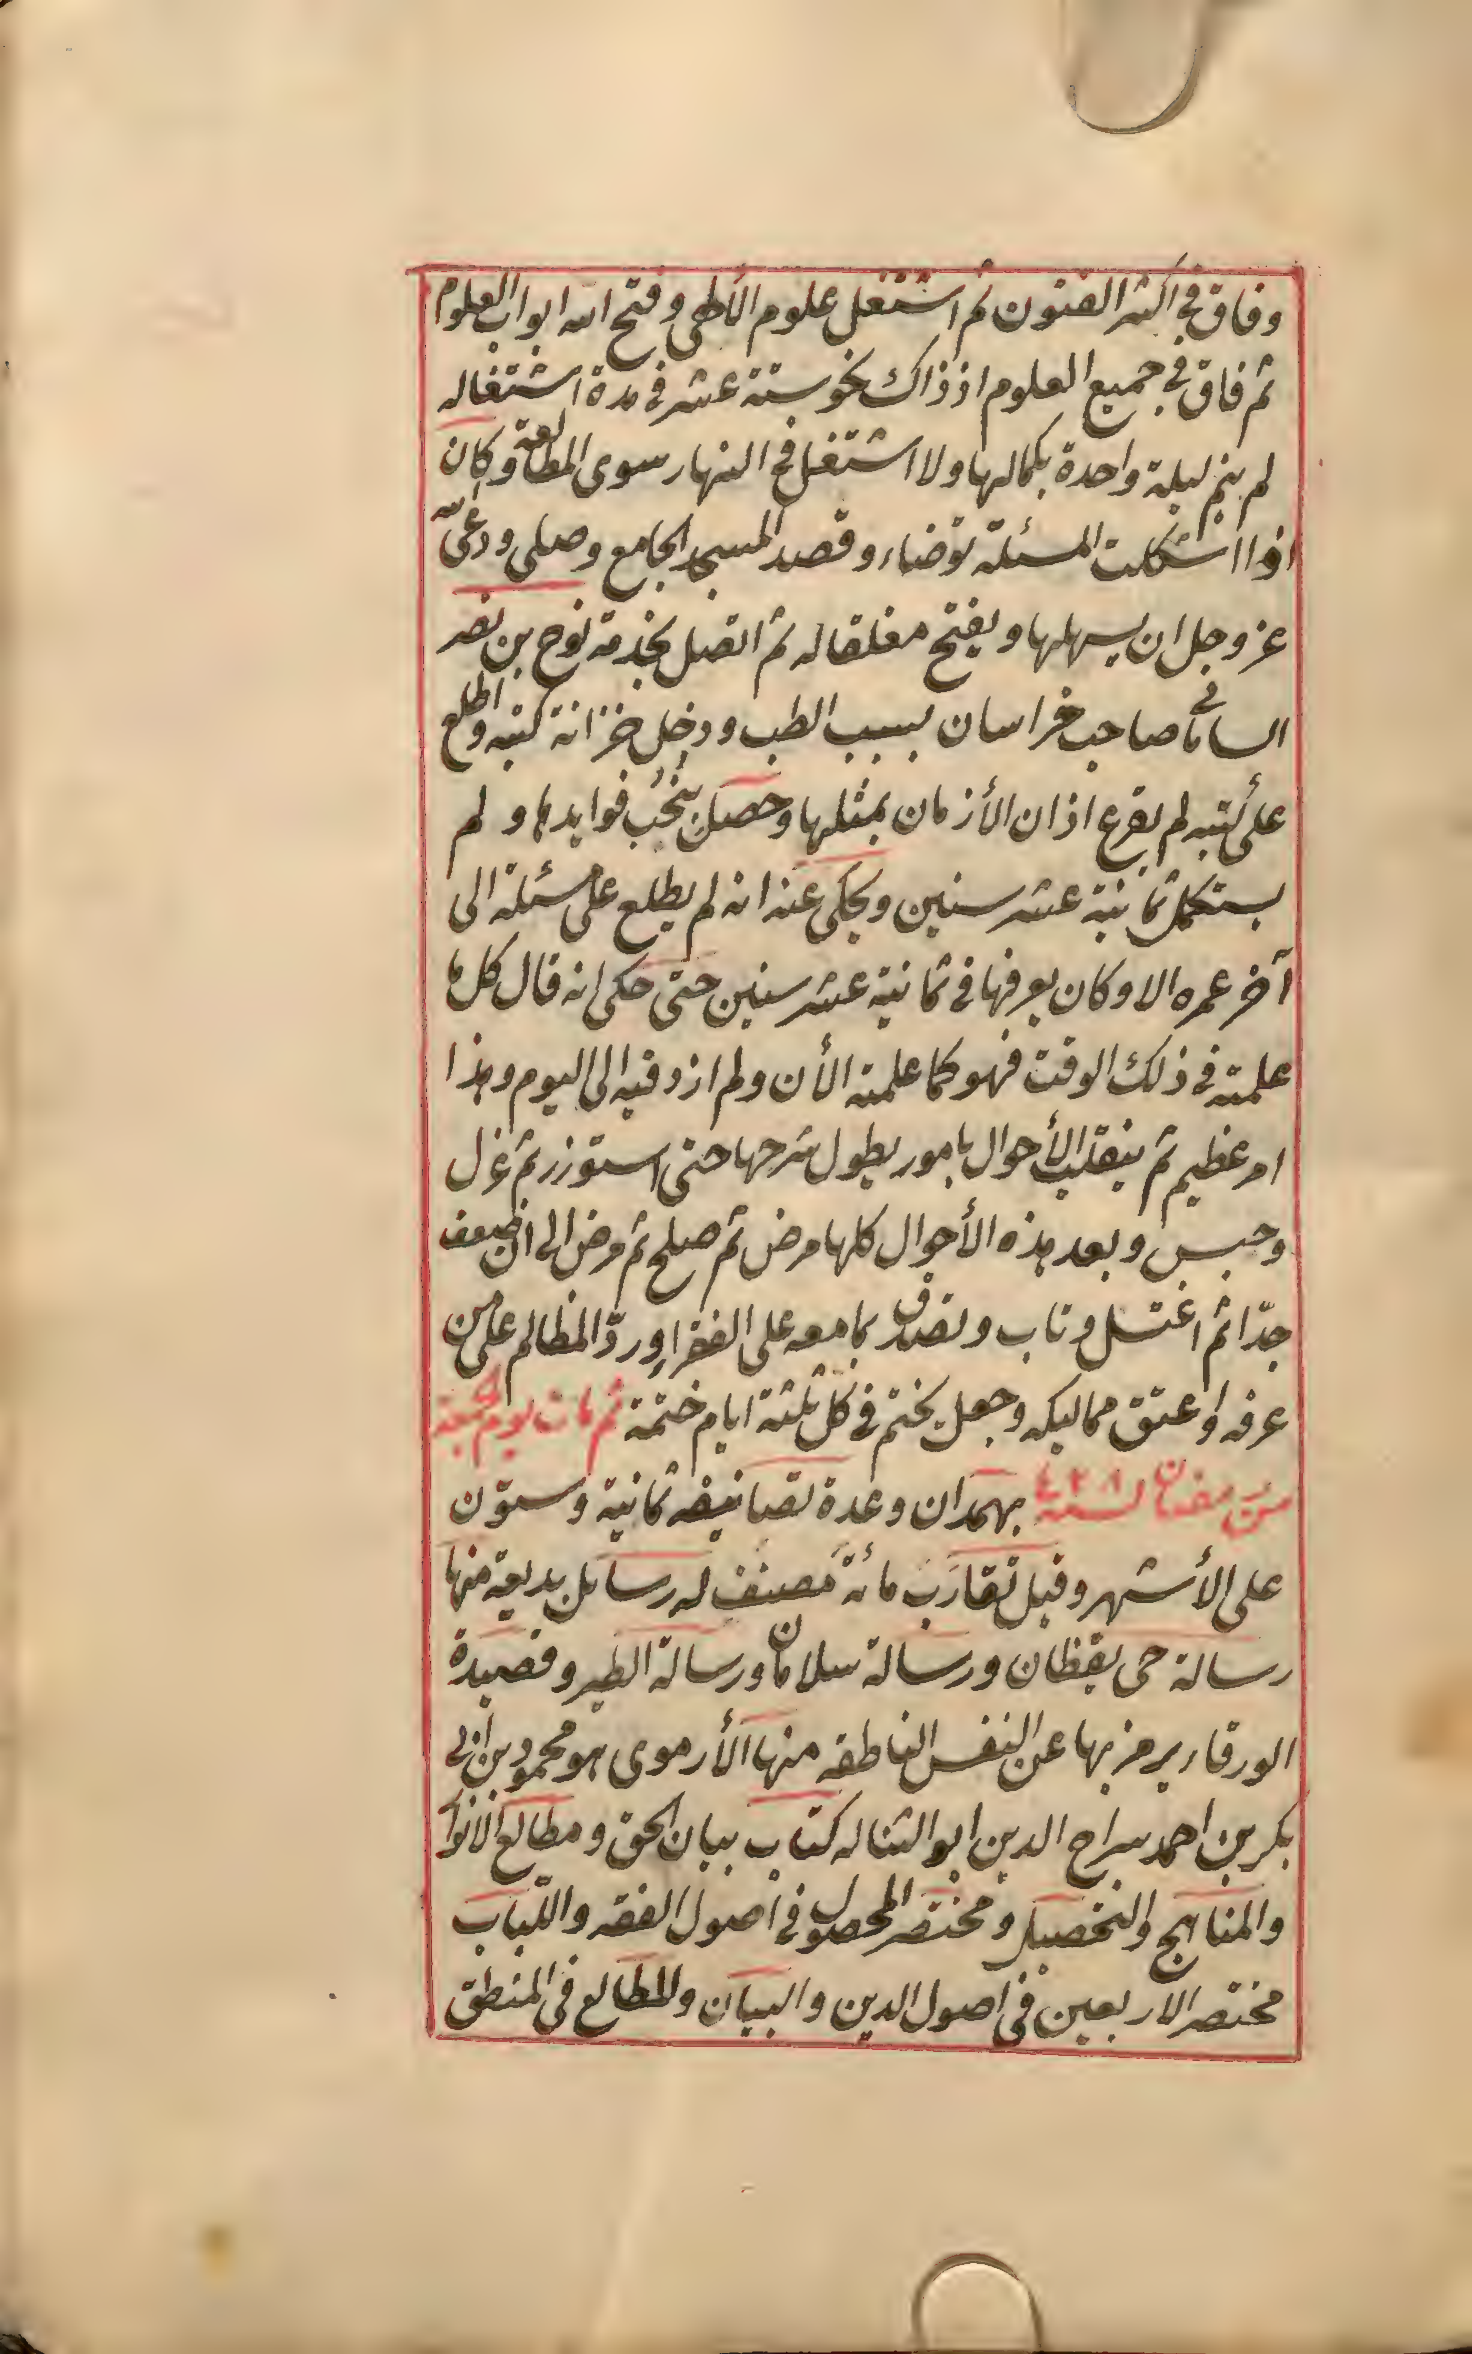 وفاق في اكثر الفنون ثم اشتغل علوم الألهى وفتح الله ابواب العلوم
ثم فاق في جميع العلوم اذ ذاك بنحو ستة عشر في مدة اشتغاله
لم ينم ليلة واحدة بكمالها ولا اشتغل في النهار سوى المطالعة وكان
اذا اشكلت المسئلة توضاء وقصد المسجد الجامع وصلى ودعى الله
عز وجل ان يسهلها ويفتح مغلقا له ثم اتصل بخدمة نوح بن نصر
السامانى صاحب خراسان بسبب الطب ودخل خزانة كتبه واطلع
على كتبه لم يقرع اذان الأزمان بمثلها وحصل بنخب فوايدها ولم
يستكمل ثمانية عشر سنين ويحكى عنه انه لم يطلع على مسئلة الى
آخر عمره الا وكان يعرفها في ثمانية عشر سنين حتى حكى انه قال كل ما
علمته في ذلك الوقت فهو كما علمته الأن ولم ازد فيه الى اليوم وهذا
امر عظيم ثم ينقلب الأحوال بامور يطول شرحها حتى استوزر ثم عزل
وحبس وبعد هذه الأحوال كلها مرض ثم صلح ثم مرض الى ان ضعف
جدّا ثم اغتسل وتاب وتصدق بما معه على الفقراء وردّ المظالم على من
عرفه واعتق مماليكه وجعل يختم في كل ثلثة ايام ختمة ثم مات يوم الجمعة
من رمضان لسنة ٤٢٨ بهمدان وعدة تصانيفه ثمانية وستون
على الأشهر وقيل تقارب مائة مصنف له رسايل بديعة منها
رسالة حى يقظان ورسالة سلامان ورسالة الطير وقصيدة
الورقاء يرمز بها عن النفس الناطقه منها الأرموى هو محمود بن ابى
بكر بن احمد سراج الدين ابو الثنا له كتاب بيان الحق ومطالع الانوار
والمناهج والتحصيل ومختصر المحصول في اصول الفقه واللباب
مختصر الاربعين في اصول الدين والبيان والمطالع في المنطق